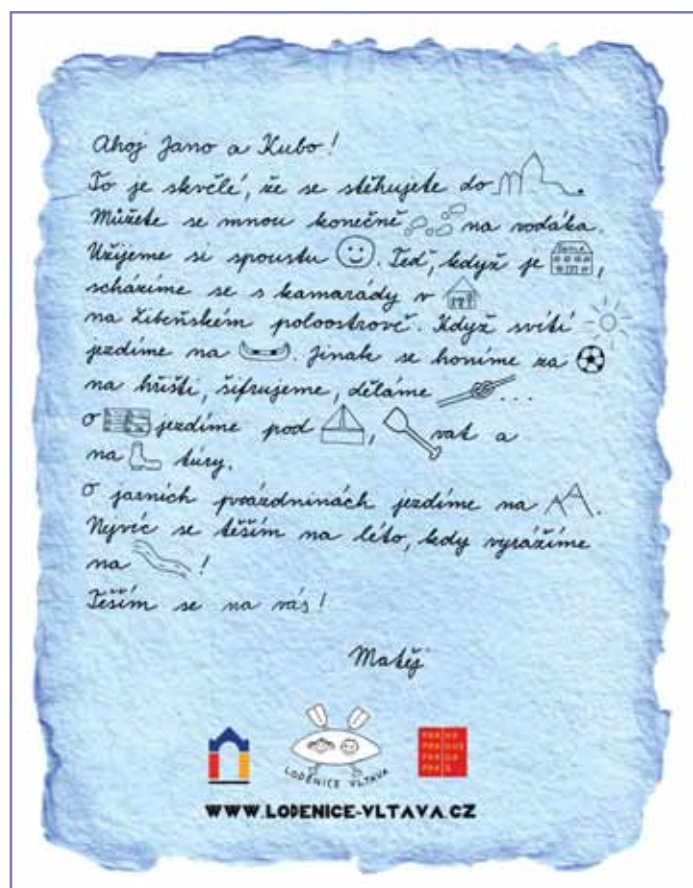 Ahoj Jano a Kubo!
To je skvělé, že se stěhujete do .
Můžete se mnou konečně na vodáka.
Užijeme si spoustu . Teď, když je ŠKOLA ,
scházíme se s kamarády v
na Libeňském poloostrově. Když svítí
jezdíme na . Jinak se honíme za
na hřišti, šifrujeme, děláme ...
O jezdíme pod , vat a
na túry.
O jarních prázdninách jezdíme na .
Nejvíc se těším na léto, kdy vyrážíme
na !
Těším se na vás!
Matěj
LODĚNICE VLTAVA
PRA HA
PRA GUE
PRA GA
PRA G
WWW.LODENICE-VLTAVA.CZ